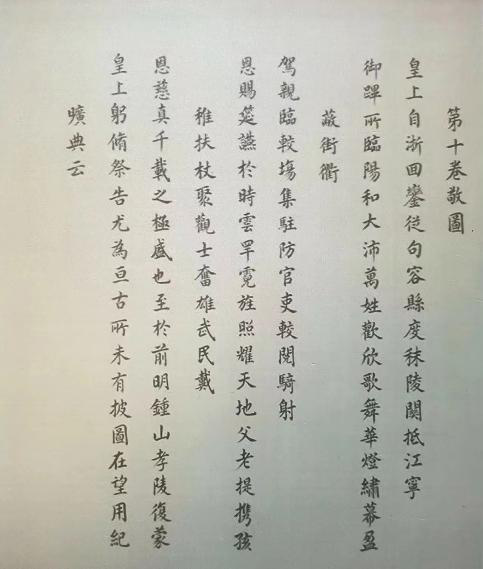 第十卷敬圖
皇上自浙回鑾從句容縣度秣陵關抵江寧
御蹕所臨陽和大沛萬姓歡欣歌舞華燈繡幕盈
蔽街衢
駕親臨較塲集駐防官吏較閱騎射
恩賜筵讌於時雲罕霓旌照耀天地父老提攜孩
稚扶杖聚觀士奮雄武民戴
恩慈真千載之極盛也至於前明鍾山孝陵復蒙
皇上躬脩祭告尤為亘古所未有披圖在望用紀
曠典云